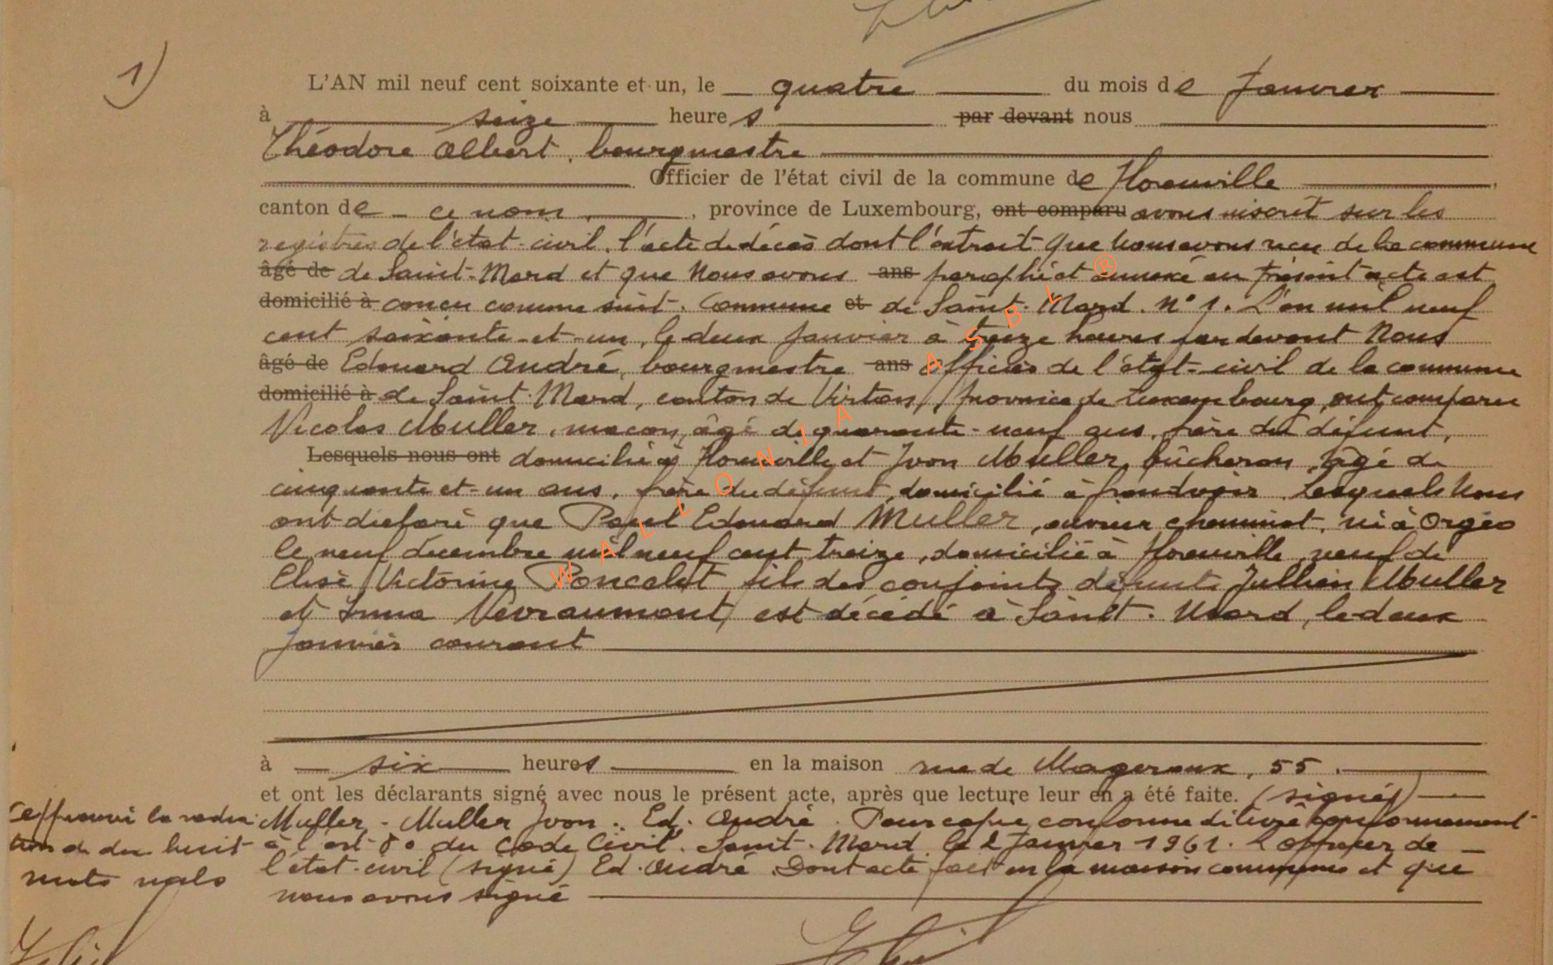 1)
L'AN mil neuf cent soixante et un, le quatre du mois de Janvier
à seize heures par devant nous
Théodore Albert, bourgmestre
Officier de l'état civil de la commune de Florenville
canton de ce nom, province de Luxembourg, ont comparu avons inscrit sur les
registres de l'état-civil, l'acte de décès dont l'extrait que nous avons reçu de la commune
âgé de de Saint-Mard et que Nous avons ans paraphé et annexé au présent acte est
domicilié à conçu comme suit. Commune et de Saint-Mard. N° 1. L'an mil neuf
cent soixante-et-un, le deux Janvier à treize heures par devant Nous
âgé de Edouard André, bourgmestre ans officier de l'état-civil de la commune
domicilié à de Saint-Mard, canton de Virton, province de Luxembourg, ont comparu
Nicolas Muller, maçon, âgé de quarante-neuf ans, frère du défunt,
Lesquels nous ont domicilié à Florenville et Yvon Muller, bûcheron, âgé de
cinquante-et-un ans, frère du défunt, domicilié à frondvoir. Lesquels Nous
ont déclaré que Paul Edouard Muller, ouvrier cheminot, né à Orgeo
le neuf décembre mil neuf cent treize, domicilié à Florenville, veuf de
Elise Victorine Poncelet fils des conjoints défunts Jullien Muller
et Anna Nevraumont, est décédé à Saint-Mard, le deux
Janvier courant
à six heures en la maison rue de Mageroux, 55.
et ont les déclarants signé avec nous le présent acte, après que lecture leur en a été faite. (signé)
Muller - Muller Yvon - Ed. André. Pour copie conforme délivré conformément
à l'art. 80 du Code Civil. Saint-Mard le 2 Janvier 1961. L'officier de
l'état-civil (signé) Ed. André Dont acte fait en la maison communale et que
nous avons signé
Approuvé la radia
tion de huit
mots nuls
WALLONIA ASBL ®